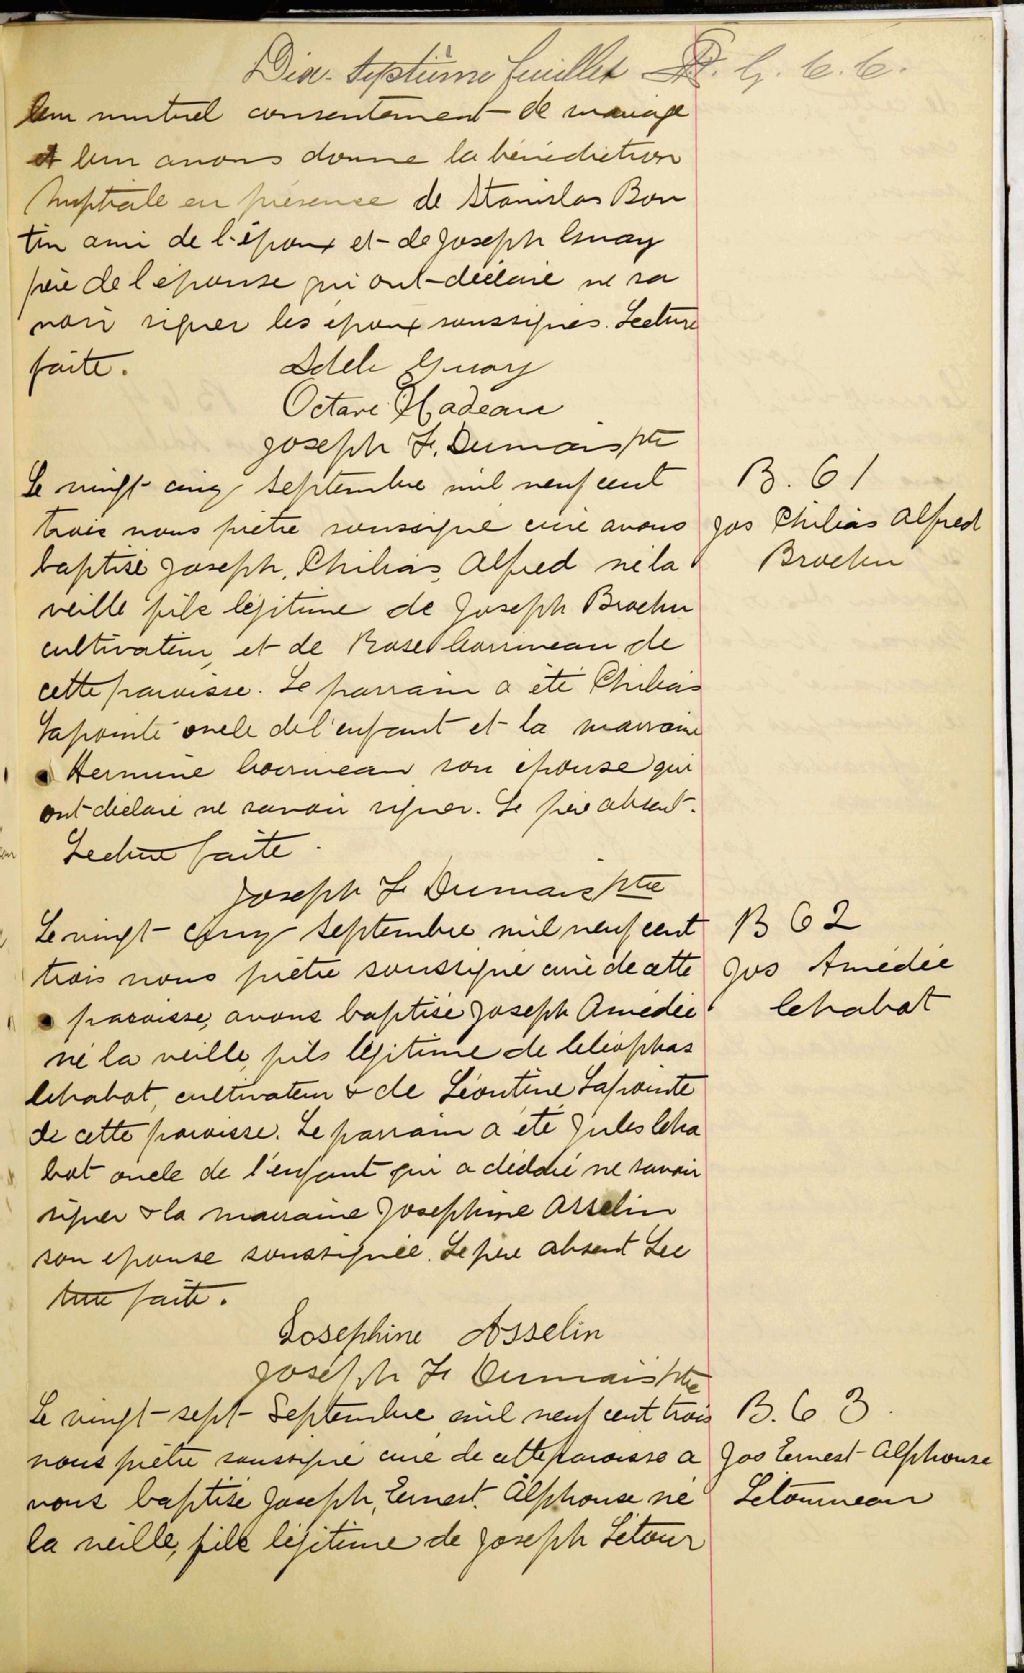 Dix-septième feuillet P. G. C. C.
leur mutuel consentement de mariage
et leur avons donne la bénédiction
Nuptiale en présense de Stanislas Bou
tin ami de l'époux et de Joseph Guay
père de l'épouse qui ont déclaré ne sa
voir signer les époux soussignés. Lecture
faite.
Adele Guay
Octave Nadeau
Joseph F. Dumais Ptre
Le vingt cinq Septembre mil neuf cent
trois nous prêtre soussigné curé avons
baptisé Joseph, Chilias, Alfred né la
veille fils légitime de Joseph Brochu
cultivateur, et de Rose Corriveau de
cette paroisse. Le parrain a été Chilias
Lapointe oncle de l'enfant et la marraine
Hermine Corriveau son épouse qui
ont déclaré ne savoir signer. Le père absent.
Lecture faite.
Joseph F Dumais Ptre
B. 61
Jos Chilias Alfred
Brochu
Le vingt-cinq Septembre mil neuf cent
trois nous prêtre soussigné curé de cette
paroisse, avons baptisé Joseph Amédée
né la veille, fils légitime de Cléophas
Chabot, cultivateur & de Léontine Lapointe
de cette paroisse. Le parrain a été Jules Cha
bot oncle de l'enfant qui a déclaré ne savoir
signer & la marraine Josephine Asselin
son epouse soussignée. Le père absent Lec
ture faite.
Josephine Asselin
Joseph F Dumais Ptre
B 62
Jos Amédée
Chabot
Le vingt-sept Septembre mil neuf cent trois
nous prêtre soussigné curé de cette paroisse a
vons baptisé Joseph, Ernest. Alphonse né
la veille, fils légitime de Joseph Létour
B. 63
Jos Ernest Alphonse
Létourneau